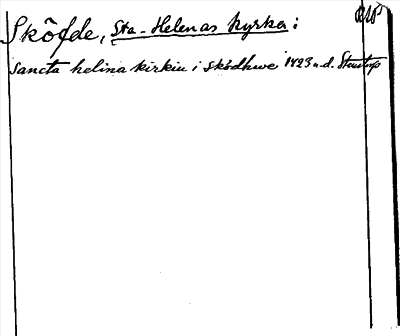 Sköfde, Sta. Helenas kyrka:
Sancta helina kirkiu i skødhwe 1423 u.d.